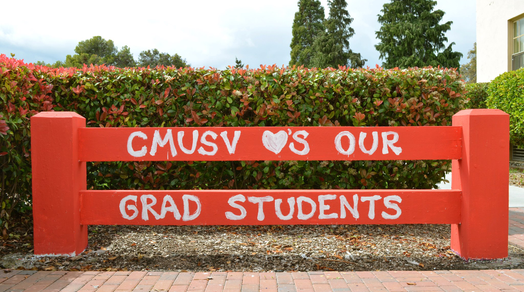 CMUSV ♥'S OUR
GRAD STUDENTS